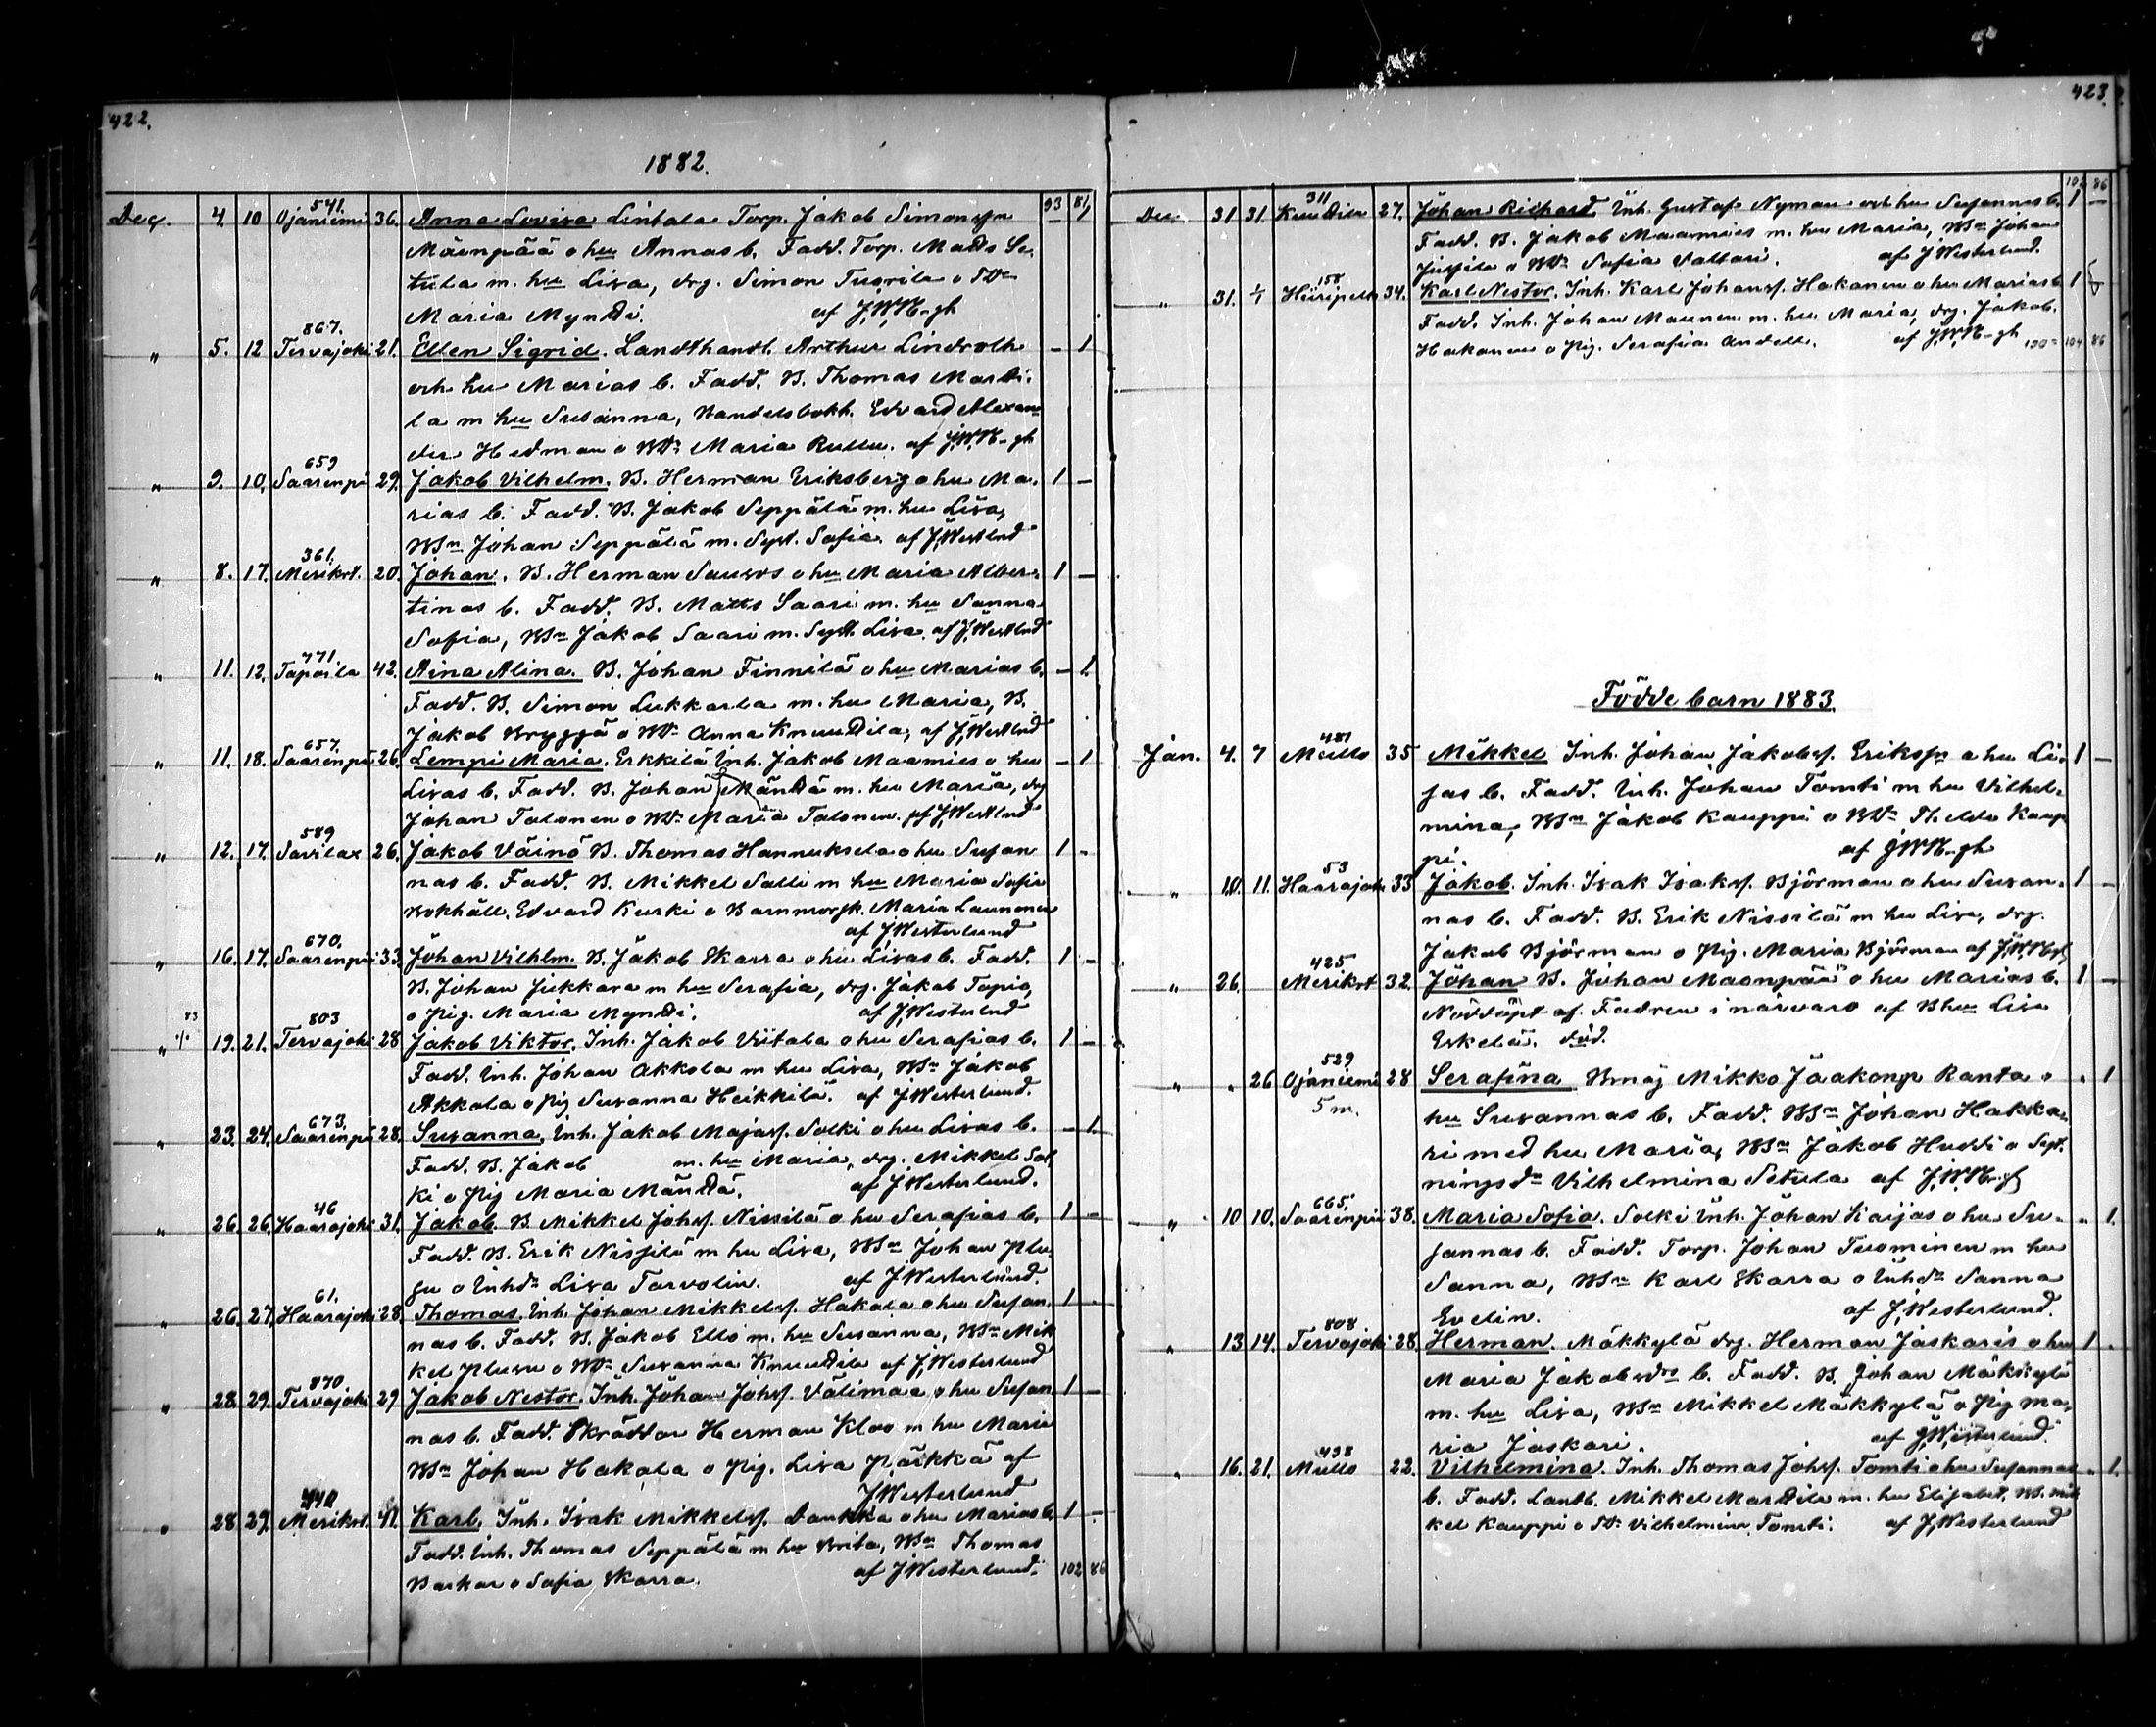 422.
1882.
93 81
Dec. 4. 10 541. Ojaniemi 36. Anna Lovisa Lintala Torp. Jakob Simonspn
Mäenpää o hu Annas b. Fadd. Torp. Matts Se-
tula m. hu Lisa, drg. Simon Tuorila o Dr
Maria Myntti. af J,W,W-gh
" 5. 12 867. Tervajoki 21. Ellen Sigrid. Landthandl. Arthur Lindroth - 1
och hu Marias b. Fadd. B. Thomas Marti-
la m hu Susanna, Handelsbokh. Edvard Alexan
der Hedman o BDr Maria Rullu. af J,W,W-gh
" 9. 10. 659 Saarenpä 29. Jakob Vilhelm. B. Herman Eriksberg o hu Ma- 1 -
rias b. Fadd. B. Jakob Seppälä m. hu Lisa,
BSn Johan Seppälä m. Syst. Sofia. af J,Westlnd
" 8. 17. 361. Merikrt. 20. Johan. B. Herman Sauros o hu Maria Alber- 1 -
tinas b. Fadd. B. Matts Saari m. hu Sanna
Sofia, BSn Jakob Saari m. Syst. Lisa. af J,Westlnd
" 11. 12. 771. Taposila 42. Aina Alina. B. Johan Finnilä o hu Marias b. - 1.
Fadd. B. Simon Lukkarla m. hu Maria, B.
Jakob Bryggä o BDr Anna Knuuttila, af J,Westlnd
" 11. 18. 657. Saarenpä 26. Lempi Maria. Erkkilä Inh. Jakob Maamies o hu - 1
Lisas b. Fadd. B. Johan Mänttä m. hu Maria, drg
Johan Talonen o BDr Maria Talonen. af J,Westlnd
" 12. 17. 589 Savilax 26. Jakob Väinö B. Thomas Hannuksela o hu Susan 1 -
nas b. Fadd. B. Mikkel Salli m hu Maria Sofia
Bokhåll. Edvard Kurki o Barnmorsk. Maria Launonen
af J,Westerlund
" 16. 17. 670. Saarenpä 33. Johan Vilhlm. B. Jakob Skarra o hu Lisas b. Fadd. 1 -
B. Johan Jukkara m hu Serafia, drg. Jakob Tapio,
o Pig. Maria Myntti. af J,Westerlnd
83
" 19. 21. 803 Tervajoki 28 Jakob Viktor. Inh. Jakob Viitala o hu Serafias b. 1 -
Fadd. Inh. Johan Akkola m hu Lisa, BSn Jakob
Akkola o Pig Susanna Heikkilä. af J,Westerlund.
" 23. 24. 673. Saarenpä 28. Susanna, Inh. Jakob Majass. Solki o hu Lisas b. - 1.
Fadd. B. Jakob m. hu Maria, drg. Mikkel Sol
ki o Pig Maria Mänttä. af J,Westerlund.
" 26. 26. 46 Haarajoki 31. Jakob B. Mikkel Johss. Nissilä o hu Serafias b. 1 -
Fadd. B. Erik Nissilä m hu Lisa, BSn Johan Plu
su o Inhdr Lisa Tarvolin. af J,Westerlund.
" 26. 27. 61. Haarajoki 28. Thomas. Inh. Johan Mikkelss. Hakala o hu Susan- 1 -
nas b. Fadd. B. Jakob Ello m. hu Susanna, BSn Mik
kel Plusu o BDr Susanna Knuuttila af J,Westerlund
" 28. 29. 870 Tervajoki 29 Jakob Nestor. Inh. Johan Johss. Välimaa o hu Susan 1 -
nas b. Fadd. Skräddar Herman Kloo m hu Maria
BSn Johan Hakala o Pig. Lisa Päkkä af
J,Westerlund
" 28. 29. 440 Merikrt. 41. Karl. Inh. Isak Mikkelss. Daukka o hu Marias b. 1 -
Fadd. Inh. Thomas Seppälä m hu Brita, BSn Thomas
Barkar o Sofia Skarra. af J,Westerlund. 102 86
423.
102 86
Dec. 31 31. 311 Knuuttila 27. Johan Richard, Inh. Gustaf Nyman och hu Susannas b. 1 -
Fadd. B. Jakob Maamies m. hu Maria, BSn Johan
Jussila o BDr Sofia Vallari. af J,Westerlund.
" 31. 1/1 158 Hiiripelto 34. Karl Nestor. Inh. Karl Johanss. Hakanen o hu Marias b 1
Fadd. Inh. Johan Maunen m. hu Maria, drg. Jakob.
Hakanen o Pig. Serafia Andell. af J,W,W-gh 190= 104 86
Födde barn 1883.
Jan. 4. 7 481 Mullo 35 Mikkel Inh. Johan Jakobss. Erikspn o hu Li- 1 -
sas b. Fadd. Inh. Johan Tomti m hu Vilhel-
mina, BSn Jakob Kauppi o BDr Thilda Kaup
pi. af J,W,W-gh
" 10. 11. 53 Haarajoki 33 Jakob. Inh. Isak Isakss. Björman o hu Susan- 1 -
nas b. Fadd. B. Erik Nissilä m hu Lisa, drg.
Jakob Björman o Pig. Maria Björman af J,W,W-gh
" 26. 425 Merikrt 32. Johan B. Johan Maonpää o hu Marias b. 1 -
Nöddöpt af Fadren i närvaro af Bhu Lisa
Erkelä. död.
" " 26 529 Ojaniemi 28 Serafina Bmåg Mikko Jaakonp Ranta o " 1
5 m. hu Susannas b. Fadd. BSn Johan Hakka-
ri med hu Maria, BSn Jakob Huddi o Syst.
ningsdr Vilhelmina Setula af J,W,W-gh
" 10 10. 665. Saarenpä 38. Maria Sofia. Solki Inh. Johan Kaijas o hu Su- " 1.
sannas b. Fadd. Torp. Johan Tuominen m hu
Sanna, BSn Karl Skarra o Inhdr Sanna
Evelin. af J,Westerlund.
" 13 14. 808 Tervajoki 28. Herman. Mäkkylä drg. Herman Jaskaris o hu 1 .
Maria Jakobsdrs b. Fadd. B. Johan Mäkkylä
m. hu Lisa, BSn Mikkel Mäkkylä o Pig Ma-
ria Jaskari. af J,Westerlund.
" 16. 21. 498 Mullo 22. Vilhelmina. Inh. Thomas Johss. Tomti o hu Susannas " 1.
b. Fadd. Lantb. Mikkel Marttila m. hu Elisabet, BS. Mik
kel Kauppi o Dr Vilhelmina Tomti. af J,Westerlund